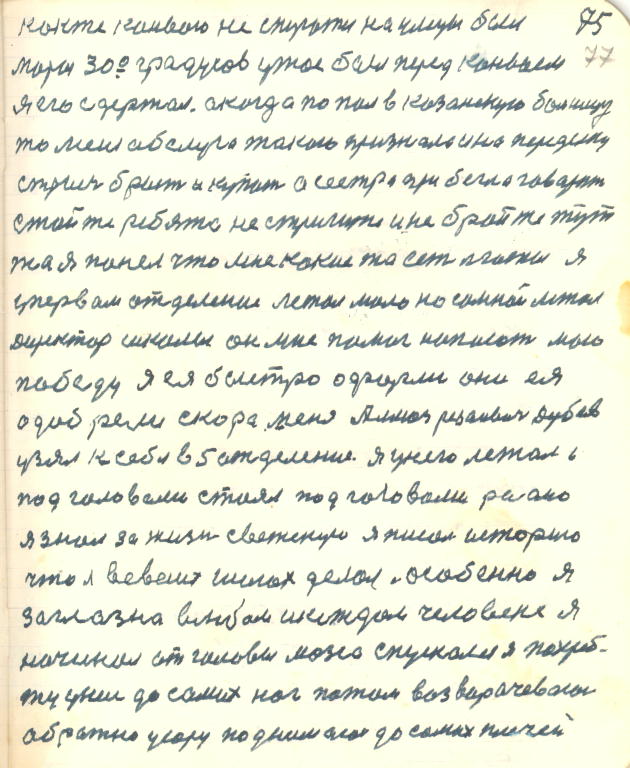 75
77
кокже конвою не спустти на улицы был
мороз 30º градусов ужос был перед конваем
я его сдержал. а когда попол в козанскую болницу
то меня обслуга такого признала и на переделку
стрич брит и купат а сестра при бегла говарит
стойте ребята не стригите и не бройте тут
жа я понел что мне какие то сет лготы я
у первом отделение лежал мало но са мной лежал
директор школы он мне помог написат маю
победу я ея быстро они ея
одобрели скора меня Дубов
узял к себя в 5 отделение. я у него лежал и
под головами стоял под головами радио
я знал за жизн свежскую я писал историю
что я делал. особенно я
заглазна влюбом икождом человеке я
начинал от головы мозга спускался я похреб-
ту до самих ног потом возворачевался
обратно угору подымался до самых плечей